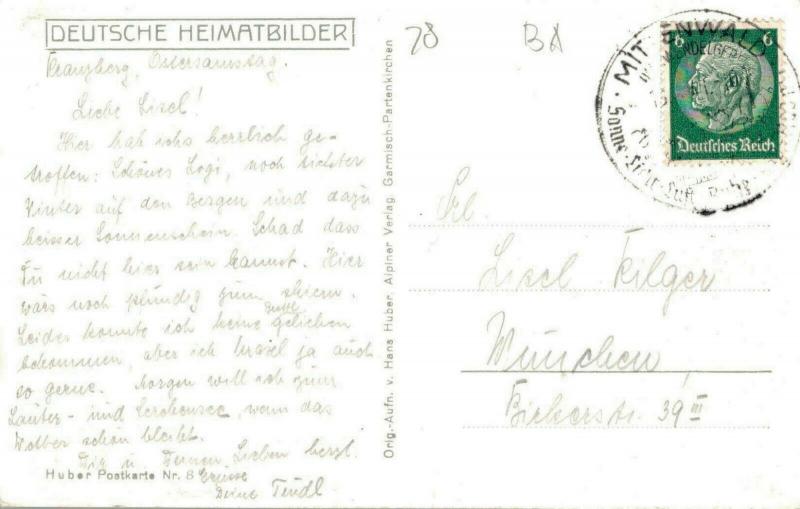 DEUTSCHE HEIMATBILDER
28
BX
Kranzberg, Ostersamstag.
Liebe Lisel!
Hier hab ichs herrlich ge-
troffen: Schönes Logi, noch tiefster
Winter auf den Bergen und dazu
heisser Sonnenschein. Schad dass
Du nicht hier sein kannst. Hier
wärs noch pfundig zum skiern.
Leider konnte ich keine geliehen
bekommen, aber ich ja auch
so gerne. Morgen will ich zum
Lauter- und, wenn das
Wetter schön bleibt.
Dir u. Deinen Lieben herzl.
Grüsse
Deine Teudl
Huber Postkarte Nr. 8
Orig.-Aufn. v. Hans Huber, Alpiner Verlag, Garmisch-Partenkirchen
MITTENWALD
6
6
Deutsches Reich
Frl.
Lisel Kilger
München,
Birkerstr. 39 III